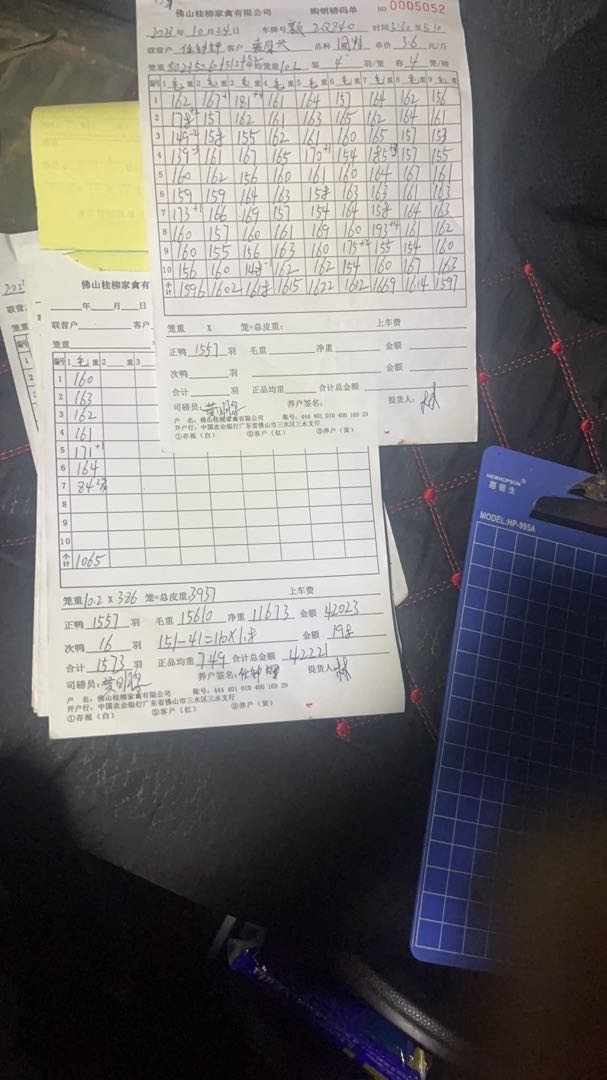 佛山桂柳家禽有限公司 购销磅码单 NO 0005052
2023年10月24日 车牌号 2Q840 时间3:30至5:10
联营户 客户 品种 单价 3.6 元/斤
笼重50.2+50.6+51.2+52 平均笼重10.2 装 4 羽/笼 称 4 笼/磅
编号 1 毛 重 2 毛 重 3 毛 重 4 毛 重 5 毛 重 6 毛 重 7 毛 重 8 毛 重 9 毛 重
1 162 167+1 181+4 161 164 157 164 162 156
2 178+4 157 162 161 163 165 162 164 161
3 149-2 158 155 162 161 160 165 157 153
4 139-3 161 167 165 170+1 154 185+3 157 155
5 160 162 156 160 161 160 164 167 161
6 159 159 164 163 158 163 163 161 163
7 173+1 166 169 157 154 164 158 164 163
8 160 157 160 161 169 160 193+4 161 162
9 160 155 156 163 160 175+2 155 154 160
10 156 160 148-1 162 162 154 160 167 163
小计 1596 1602 1618 1615 1622 1612 1669 1614 1597
笼重 X 笼=总皮重: 上车费
正鸭 1557 羽 毛重 净重 金额
次鸭 羽 金额
合计 羽 正品均重 合计总金额
司磅员: 养户签名: 提货人: 林
户 名: 佛山桂柳家禽有限公司 账号: 444 401 010 400 169 29
开户行: 中国农业银行广东省佛山市三水区三水支行
①存根(白) ②客户(红) ③养户(黄)
佛山桂柳家禽有
年 月 日
联营户 客户
笼重
编号 1 毛 重 2 重 3
1 160
2 163
3 162
4 161
5 171+1
6 164
7 84
8
9
10
小计 1065
笼重10.2 X 386 笼=总皮重:3937 上车费
正鸭 1557 羽 毛重 15610 净重 11673 金额 42023
次鸭 16 羽 151-41=110×1.8 金额 198
合计 1573 羽 正品均重 7.49 合计总金额 42221
司磅员: 养户签名: 提货人: 林
户 名: 佛山桂柳家禽有限公司 账号: 444 401 010 400 169 29
开户行: 中国农业银行广东省佛山市三水区三水支行
①存根(白) ②客户(红) ③养户(黄)
NEWHOPSON
惠普生
MODEL: HP-995A